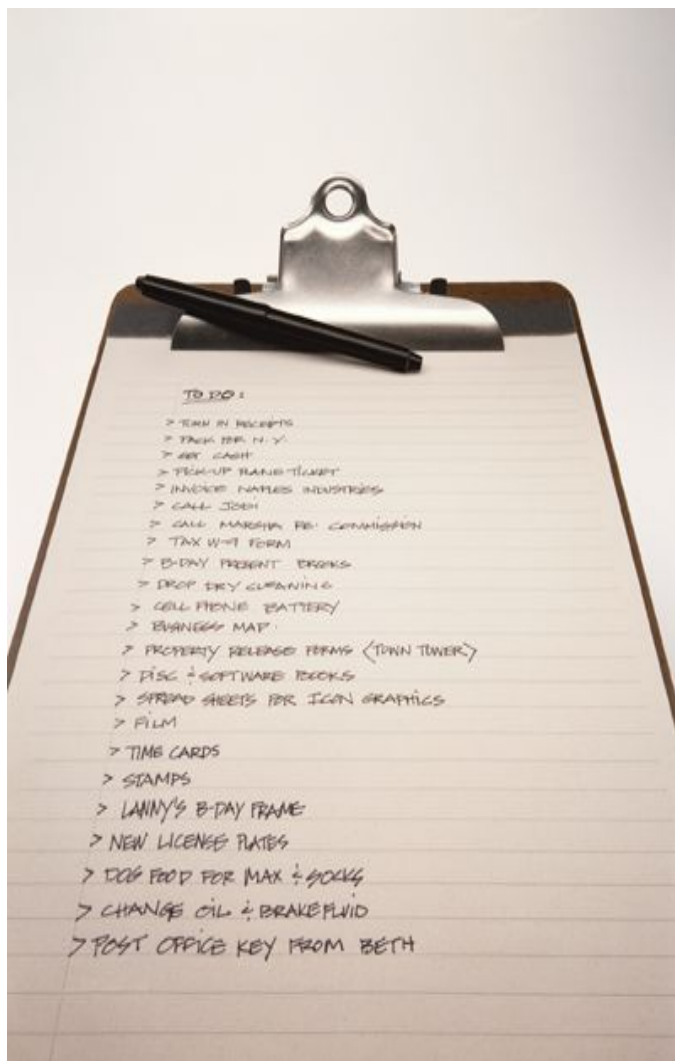 TO DO:
> TURN IN RECEIPTS
> PACK FOR N.Y.
> GET CASH
> PICK-UP PLANE TICKET
> INVOICE NAPLES INDUSTRIES
> CALL JODI
> CALL MARSHA RE: COMMISSION
> TAX W-9 FORM
> B-DAY PRESENT BROOKS
> DROP DRY CLEANING
> CELL PHONE BATTERY
> BUSINESS MAP.
> PROPERTY RELEASE FORMS <TOWN TOWER>
> DISC & SOFTWARE BOOKS
> SPREAD SHEETS FOR ICON GRAPHICS
> FILM
> TIME CARDS
> STAMPS
> LANNY'S B-DAY FRAME
> NEW LICENSE PLATES
> DOG FOOD FOR MAX & SOCKS
> CHANGE OIL & BRAKE FLUID
> POST OFFICE KEY FROM BETH